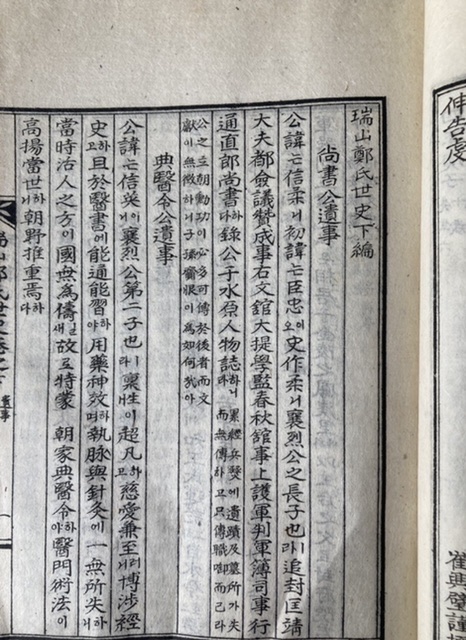 伸告處
崔興璧謹
瑞山鄭氏世史下編
尙書公遺事
公諱는信柔니初諱는臣忠이오史作柔니襄烈公之長子也라追封匡靖
大夫都僉議贊成事右文館大提學監春秋館事上護軍判軍簿司事行
通直郞尙書하다錄公子水原人物誌하니라累經兵燹에遺蹟及墓所가失而無傳하고只傳職啣而已라
公之立朝動功이必多可傳於後者而文獻이無徵하니子孫齎恨이爲如何哉아
典醫令公遺事
公諱는信英이니襄烈公第二子也라稟性이超凡하고慈愛兼至러니博涉經
史하고且於醫書에能通能習하야用藥神效하며執脉與針灸에一無所失하니
當時活人之方이國無爲儔일새故로特蒙 朝家典醫令하야醫門術法이
高揚當世하니朝野推重焉하다
遺事